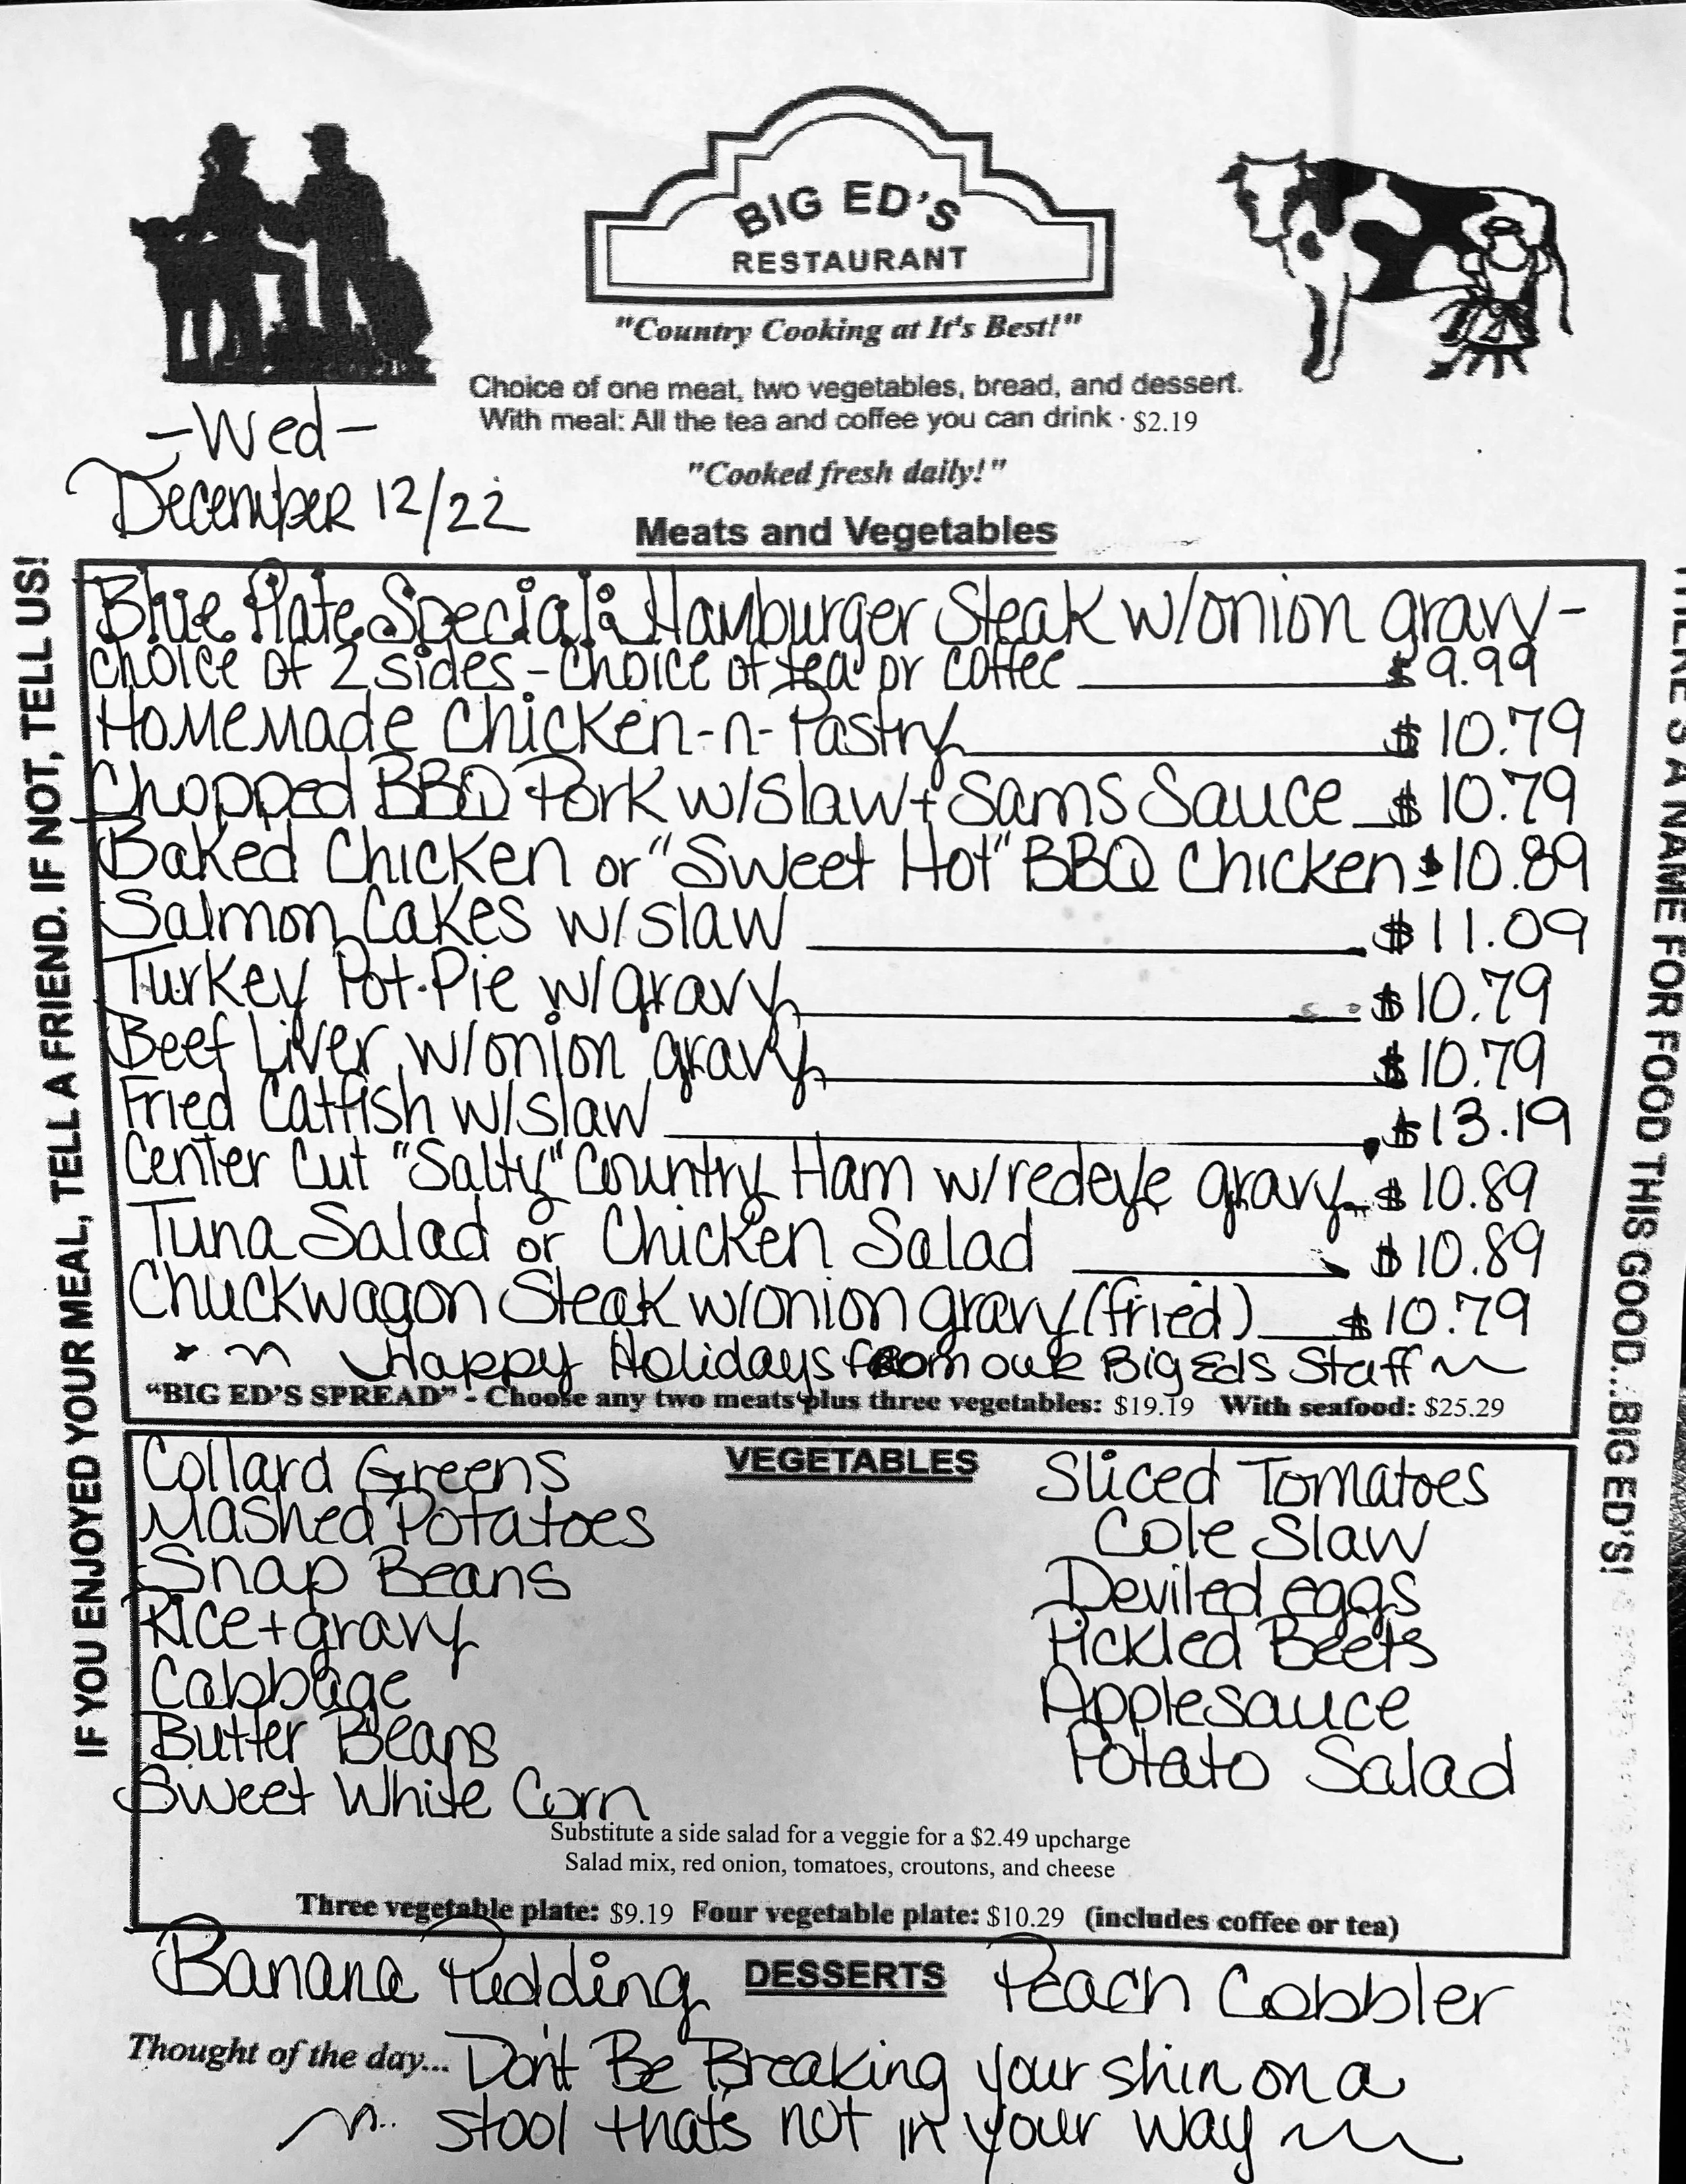 BIG ED'S
RESTAURANT
"Country Cooking at It's Best!"
Choice of one meat, two vegetables, bread, and dessert.
With meal: All the tea and coffee you can drink · $2.19
-Wed-
December 12/22
"Cooked fresh daily!"
Meats and Vegetables
IF YOU ENJOYED YOUR MEAL, TELL A FRIEND. IF NOT, TELL US!
Blue Plate Special: Hamburger Steak w/onion gravy-
choice of 2 sides - choice of tea or coffee $9.99
Homemade Chicken-n-Pastry $10.79
Chopped BBQ Pork w/slaw + Sams Sauce $10.79
Baked Chicken or "Sweet Hot" BBQ Chicken $10.89
Salmon Cakes w/slaw $11.09
Turkey Pot-Pie w/gravy $10.79
Beef Liver w/onion gravy $10.79
Fried Catfish w/slaw $13.19
Center Cut "Salty" Country Ham w/redeye gravy $10.89
Tuna Salad or Chicken Salad $10.89
Chuckwagon Steak w/onion gravy (fried) $10.79
Happy Holidays from our Big Eds Staff
"BIG ED'S SPREAD" - Choose any two meats plus three vegetables: $19.19 With seafood: $25.29
A NAME FOR FOOD THIS GOOD...BIG ED'S!
VEGETABLES
Collard Greens
Mashed Potatoes
Snap Beans
Rice + gravy
Cabbage
Butter Beans
Sweet White Corn
Sliced Tomatoes
Cole Slaw
Deviled eggs
Pickled Beets
Applesauce
Potato Salad
Substitute a side salad for a veggie for a $2.49 upcharge
Salad mix, red onion, tomatoes, croutons, and cheese
Three vegetable plate: $9.19 Four vegetable plate: $10.29 (includes coffee or tea)
DESSERTS
Banana Pudding
Peach Cobbler
Thought of the day... Don't Be Breaking your shin on a
stool that's not in your way